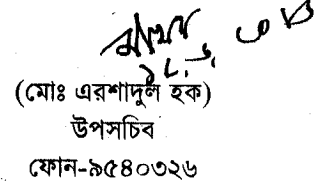 (মোঃ এরশাদুল হক)
উপসচিব
ফোন-৯৫৪০৩২৬